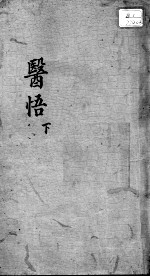 醫悟
下